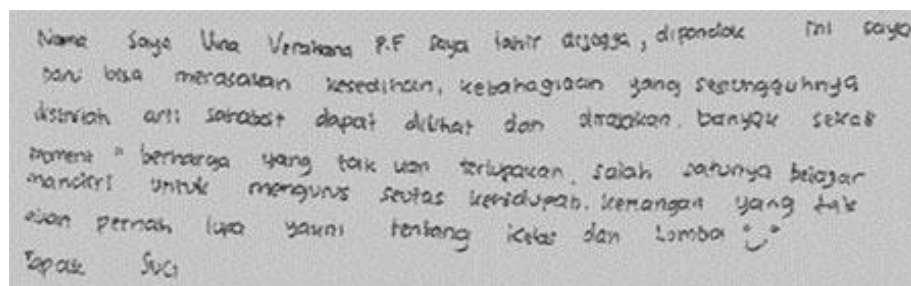 Nama Saya Una Verahana P.F Saya lahir dijogja, dipondok ini saya
baru bisa merasakan kesedihan, kebahagiaan yang sesungguhnya
disinilah arti sahabat dapat dilihat dan dirasakan. banyak sekali
moment " berharga yang tak kan terlupakan. salah satunya belajar
mandiri untuk mengurus seutas kehidupan. kenangan yang tak
akan pernah lupa yakni tentang kelas dan Lomba
Tapak Suci